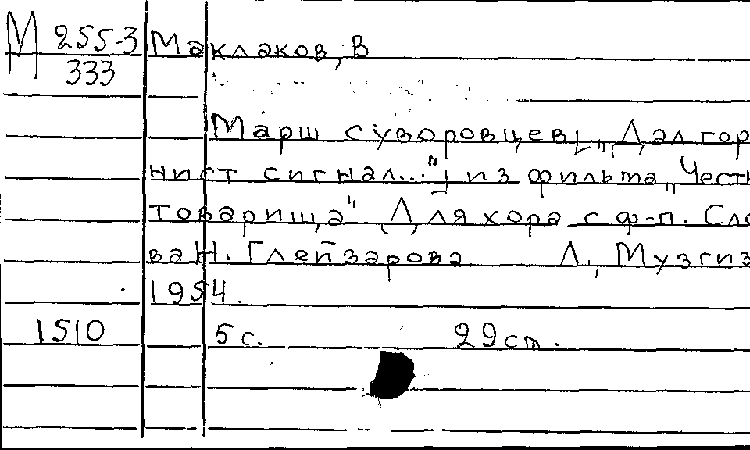 М 255-3 Маклаков, В
333
Марш суворовцев [„Дал гор
нист сигнал..."] из фильма „Чест
товарища" Для хора с ф-п. Сло
ва Н. Глейзарова Л., Музгиз
1954.
1510 5 с. 29 см.